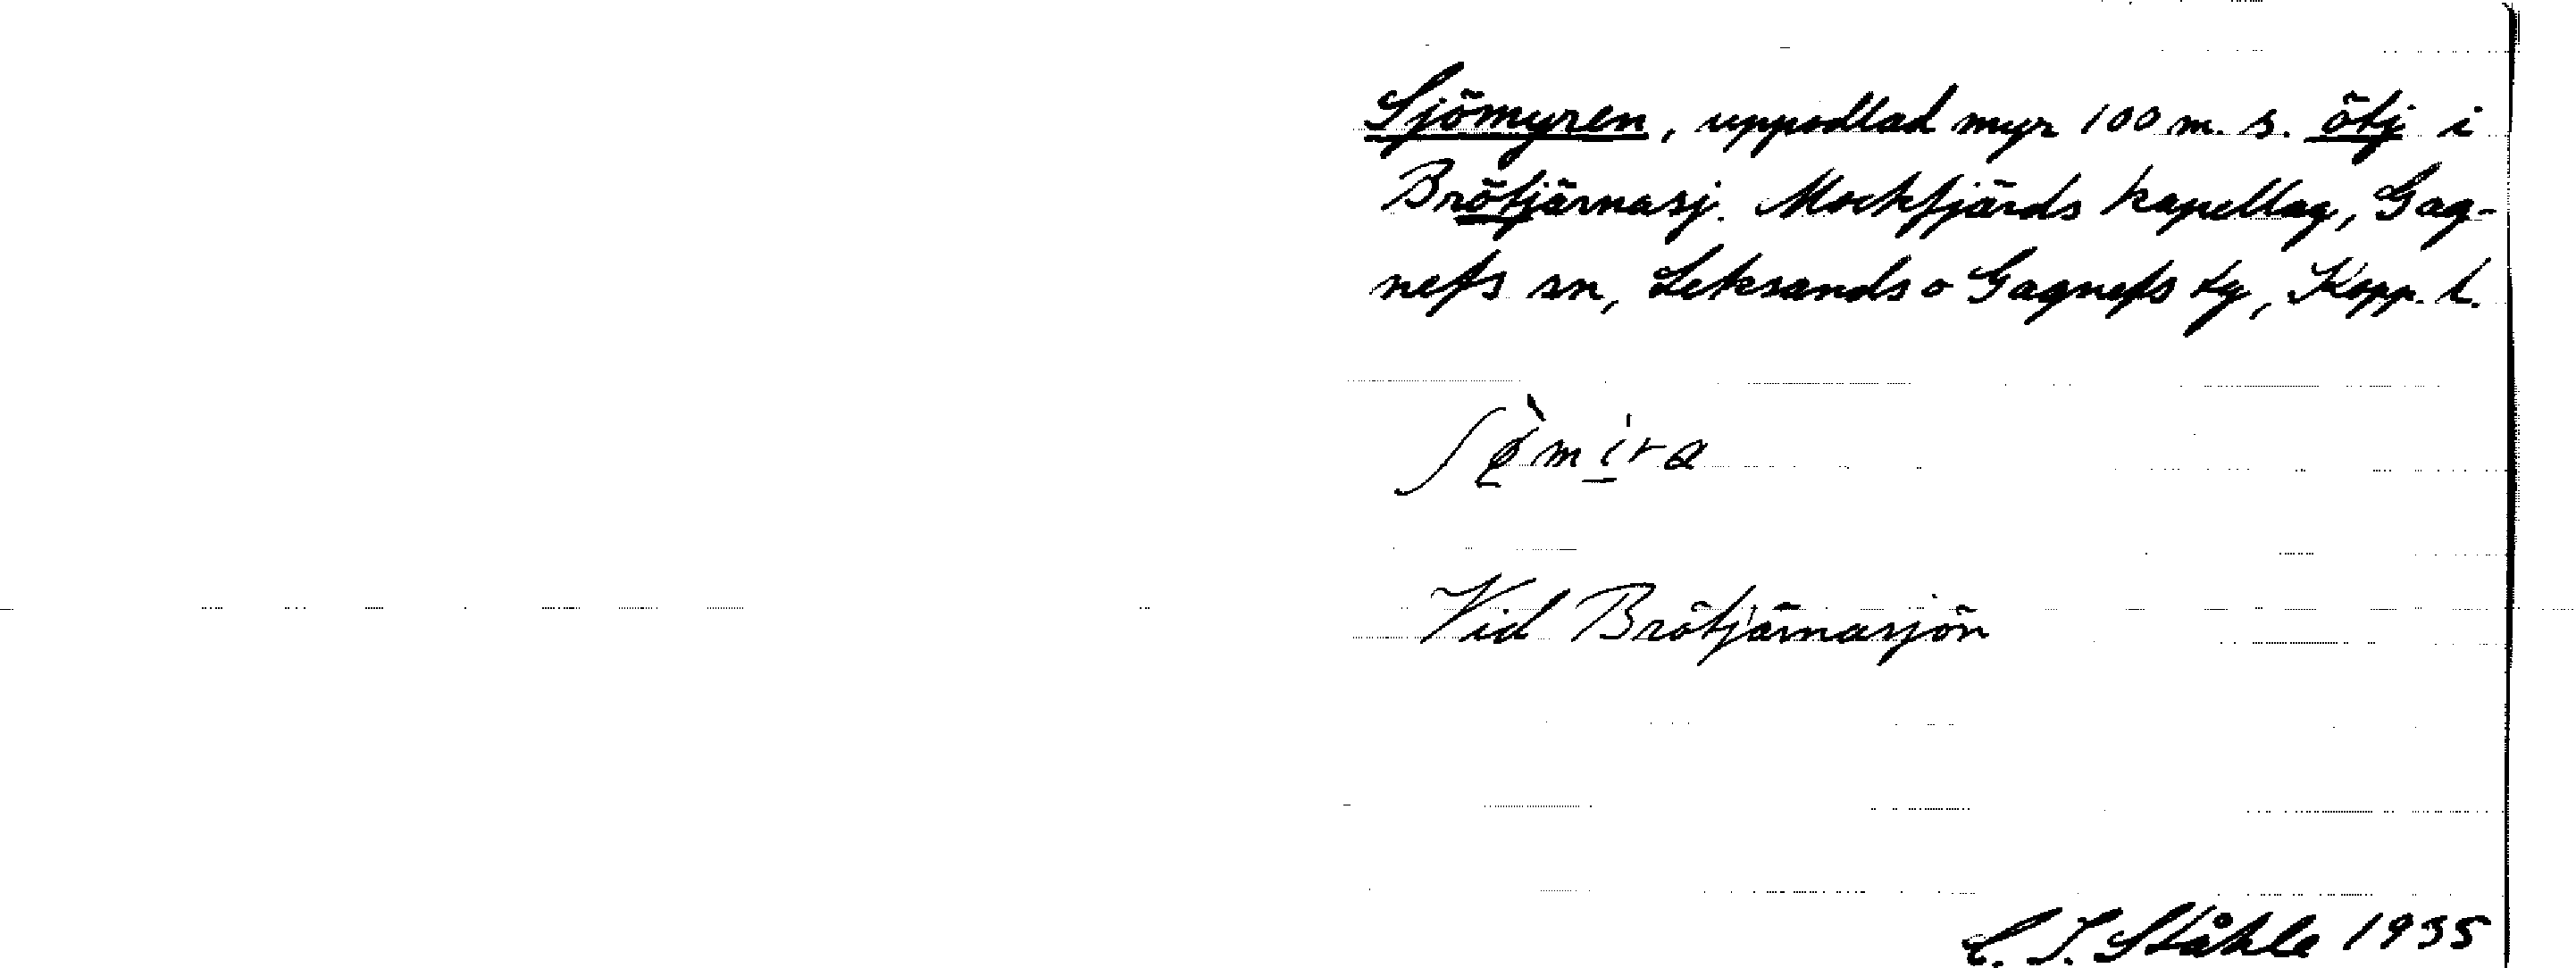 Sjömyren, uppodlad myr 100 m. s. ötj i
Brötjärnasj. Mockfjärds kapellag, Gag-
nefs sn, Leksands o Gagnefs tg, Kopp. l.
Vid Brötjärnasjön
C. I. Ståhle 1935